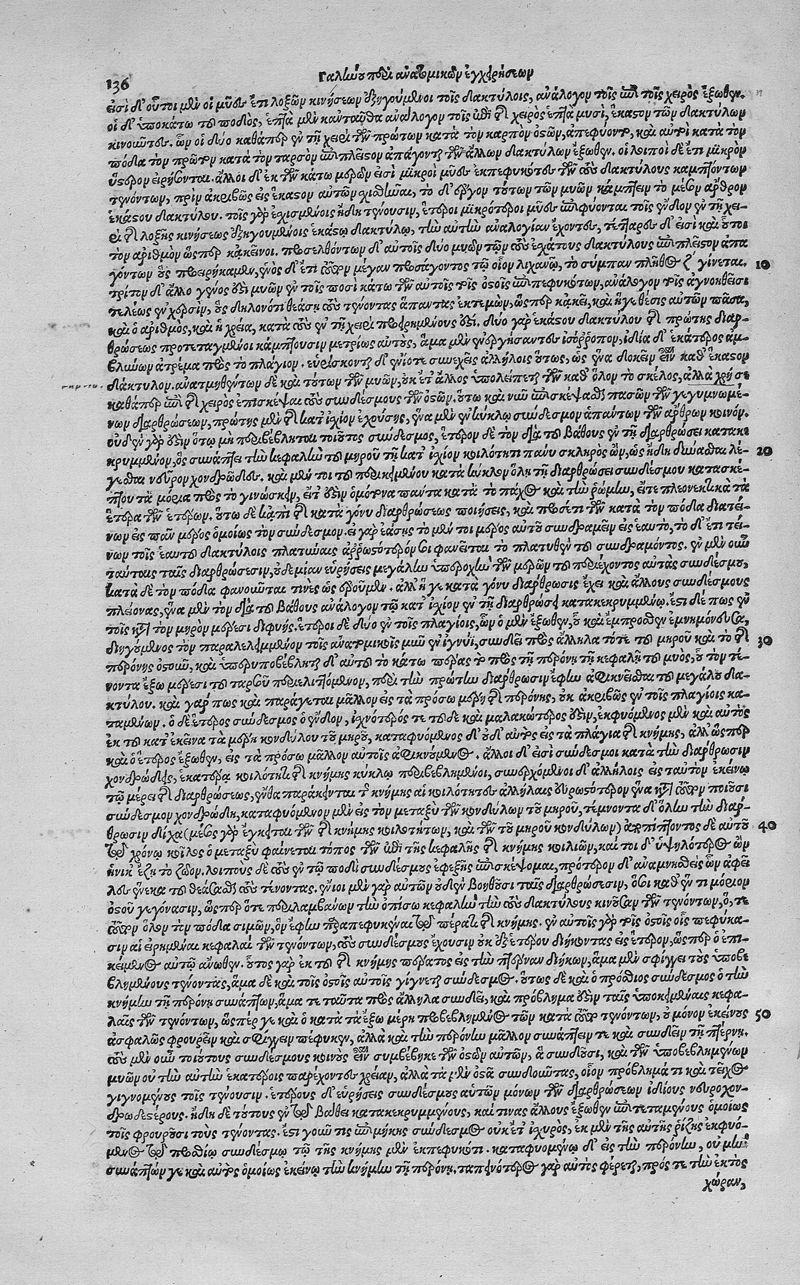 136
Γαληνοῦ περὶ ἀνατομικῶν ἐγχειρήσεων
εἰσὶ δ' οὗτοι μὲν οἱ μῦες ἔτι λοξῶν κινήσεων ἐξηγούμενοι τοῖς δακτύλοις, ἀνάλογον τοῖς ἐπὶ τοῖς χειρὸς ἔξωθεν.
οἱ δ' ὑποκάτω τοῦ ποδὸς, ἑπτὰ μὲν κἀνταῦθα ἀνάλογον τοῖς ἐπὶ τῆς χειρὸς ἑπτὰ μυσὶ, ἕκαστον τῶν δακτύλων
κινοῦντες. ὧν οἱ δύο καθάπερ ἐν τῇ χειρὶ τῶν πρώτων κατὰ τὸν καρπὸν ὀστῶν, ἀπεφύοντο, καὶ αὐτοὶ κατὰ τὸν
πόδα τὸν πρῶτον κατὰ τὸν ταρσὸν ἐπιπλεῖστον ἀπάγοντες τῶν ἄλλων δακτύλων ἔξωθεν. οἱ λοιποὶ δὲ ἔτι μικρὸν
ὕστερον εἰρήσονται. ἄλλοι δ' ἐκ τῶν κάτω μερῶν εἰσὶ μικροὶ μύες ἐπιπεφυκότες τῶν τοὺς δακτύλους καμπτόντων
τενόντων, πρὶν ἀκριβῶς εἰς ἕκαστον αὐτῶν σχισθῆναι, τὸ δ' ἔργον τούτων τῶν μυῶν κάμπτειν τὸ μέσον ἄρθρον
ἑκάστου δακτύλου. τοῖς γὰρ ἐσχισμένοις ἤδη τένουσιν, ἕτεροι μικρότεροι μύες ἐπιφύονται τοῖς ἔνδον ἐν τῇ χει-
ρὶ λοξῆς κινήσεως ἐξηγουμένοις ἑκάστῳ δακτύλῳ, τὴν αὐτὴν ἀναλογίαν ἔχοντες, τέτταρες δ' εἰσὶ καὶ οὗτοι
τὸν ἀριθμὸν ὥσπερ κἀκεῖνοι. προσελθόντων δ' αὐτοῖς δύο μὲν τῶν τοὺς ἐσχάτους δακτύλους ἐπιπλεῖστον ἀπα
γόντων οὓς προειρήκαμεν, ἑνὸς δ' ἔτι τοῦ τὸν μέγαν προσάγοντος τῷ οἷον λιχανῷ, τὸ σύμπαν πλῆθος ζ' γίνεται. 10
τρίτον δ' ἄλλο γένος ἐστὶ μυῶν ἐν τοῖς ποσὶ κάτω τῶν αὐτοῖς τοῖς ὀστοῖς ἐπιπεφυκότων, ἀνάλογον τοῖς ἀγνοηθεῖσι
τελέως ἐν χερσὶν, οὓς δηλονότι θεάσῃ τοὺς τένοντας ἅπαντας ἐκτεμὼν, ὥσπερ κἀκεῖ, καὶ ἥ γε θέσις αὐτῶν πᾶσα,
καὶ ὁ ἀριθμὸς, καὶ ἡ χρεία, κατὰ τοὺς ἐν τῇ χειρὶ προειρημένους ἐστί. δύο γὰρ ἑκάστου δακτύλου τῆς πρώτης διαρ-
θρώσεως προτεταγμένοι κάμπτουσιν μετρίως αὐτὸς, ἅμα μὲν ἐνεργήσαντες ἰσόῤῥοπον, ἰδίᾳ δ' ἑκάτερος ἀμ-
βλεῖαν ἀτρέμα πρὸς τὸ πλάγιον. εὑρίσκονται δ' ἐνίοτε συνεχεῖς ἀλλήλοις οὕτως, ὡς ἕνα δοκεῖν εἶναι καθ' ἕκαστον
δάκτυλον. ἀνατμηθέντων δὲ καὶ τούτων τῶν μυῶν, οὐκ ἔτ' ἄλλος ὑπολείπεται τῶν καθ' ὅλον τὸ σκέλος, ἀλλὰ χρή σε
καθάπερ ἐπὶ τῆς χειρὸς ἐπισκέψασθαι τοὺς συνδέσμους τῶν ὀστῶν, οὕτω καὶ νῦν ἐπισκέψασθαι πασῶν τῶν γεγυμνωμέ-
νων διαρθρώσεων, πρώτης μὲν τῆς κατ' ἰσχίον ἐχούσης, ἕνα μὲν ἐν κύκλῳ σύνδεσμον ἁπάντων τῶν ἄρθρων κοινόν.
οὐδὲν γάρ ἐστιν ὅτῳ μὴ περιβέβληται τοιοῦτος σύνδεσμος, ἕτερον δὲ τὸν διὰ τοῦ βάθους ἐν τῇ διαρθρώσει κατακε
κρυμμένον, ὃς συνάπτει τὴν κεφαλὴν τοῦ μηροῦ τῇ κατ' ἰσχίον κοιλότητι πάνυ σκληρὸς ὢν, ὡς ἤδη δύνασθαι λέ- 20
γεσθαι νεῦρον χονδρῶδες. καὶ μέν τοι τοῦ περικειμένου κατὰ κύκλον ὅλῃ τῇ διαρθρώσει συνδέσμου κατασκέ-
πτου τὰ μόρια πρὸς τὸ γινώσκειν, εἴτ' ἐστὶν ὁμότονα πάντα κατὰ τὸ πάχος καὶ τὴν ῥώμην, εἴτε πλεονεκτικὰ τὰ
ἕτερα τῶν ἑτέρων. οὕτω δὲ κἀπὶ τῆς κατὰ γόνυ διαρθρώσεως ποιήσεις, καὶ προσέτι τῶν κατὰ τὸν πόδα διατεί-
νων εἰς πᾶν μέρος ὁμοίως τὸν σύνδεσμον. εἰ γὰρ ἐάσῃς τὸ μέν τοι μέρος αὐτοῦ συνδραμεῖν εἰς ἑαυτὸ, τὸ δ' ἔτι τεί-
νων τοῖς ἑαυτοῦ δακτύλοις πλατύνας ἀῤῥωστότερόν σοι φανεῖται τὸ πλατυθὲν τοῦ συνδραμόντος. ἐν μὲν οὖν
ταύταις ταῖς διαρθρώσεσιν, οὐδεμίαν εὑρήσεις μεγάλην ὑπεροχὴν τῶν μερῶν τοῦ περιέχοντος αὐτὰς συνδέσμου,
κατὰ δὲ τὸν πόδα φανοῦνται τινὲς ὡς ἐροῦμεν. ἀλλ' ἥ γε κατὰ γόνυ διάρθρωσις ἔχει καὶ ἄλλους συνδέσμους
πλείονας, ἕνα μὲν τὸν διὰ τοῦ βάθους ἀνάλογον τῷ κατ' ἰσχίον ἐν τῇ διαρθρώσει κατακεκρυμμένῳ. ἔστι δέ πως ἐν
τοῖς κατὰ τὸν μηρὸν μέρεσι διφυής. ἕτεροι δὲ δύο ἐν τοῖς πλαγίοις, ὧν ὁ μὲν ἔξωθεν, οὗ καὶ ἔμπροσθεν ἐμνημόνευσα,
διηγούμενος τὸν παραλελειμμένον τοῖς ἀνατομικοῖς μῦν ἐν ἰγνύϊ, συνδεῖ πρὸς ἄλληλα τό τε τοῦ μηροῦ καὶ τὸ τῆς 30
περόνης ὀστοῦν, καὶ ὑπερυποβέβληται δ' αὐτοῦ τὸ κάτω πέρας τὸ πρὸς τῇ περόνῃ τῇ κεφαλῇ τοῦ μυὸς, οὗ τὸν τέ-
νοντα ἔξω μέρεσι τοῦ ταρσοῦ περιελιττόμενον, περὶ τὴν πρώτην διάρθρωσιν ἔφην ἀφικνεῖσθαι τοῦ μεγάλου δα-
κτύλου. καὶ γάρ πως καὶ παράγεται μᾶλλον εἰς τὰ πρόσω μέρη τῆς περόνης, οὐκ ἀκριβῶς ἐν τοῖς πλαγίοις κα-
ταμένων. ὁ δὲ ἕτερος σύνδεσμος ὁ ἔνδον, ἰσχνότερός τε τοῦδε καὶ μαλακώτερός ἐστιν, ἐκφυόμενος μὲν καὶ αὐτὸς
ἐκ τοῦ κατ' ἐκεῖνα τὰ μέρη κονδύλου τοῦ μηροῦ, καταφυόμενος δ' οὐδ' αὐτὸς εἰς τὰ πλάγια τῆς κνήμης, ἀλλ' ὥσπερ
καὶ ὁ ἕτερος ἔξωθεν, εἰς τὰ πρόσω μᾶλλον αὐτοῖς ἀφικνούμενος. ἄλλοι δ' εἰσὶ σύνδεσμοι κατὰ τὴν διάρθρωσιν
χονδρώδεις, ἑκατέρᾳ κοιλότητι τῆς κνήμης κύκλῳ περιβεβλημένοι, συνερχόμενοι δ' ἀλλήλοις εἰς ταὐτὸν ἐκείνῳ
τῷ μέρει τῆς διαρθρώσεως, ἔνθα παρήκουσι τῆς κνήμης αἱ κοιλότητες ἀλλήλαις εὐρωστότερον ἕνα κατὰ τοῦτο ποιοῦσι
σύνδεσμον χονδρώδη, καταφυόμενον μὲν εἰς τὸν μεταξὺ τῶν κονδύλων τοῦ μηροῦ, τέμνοντα δ' ὅλην τὴν διάρ-
θρωσιν δίχα (μέσος γὰρ ἔγκειται τῶν τῆς κνήμης κοιλοτήτων, καὶ τῶν τοῦ μηροῦ κονδύλων) ἀποπίπτοντος δὲ αὐτοῦ 40
τῷ χρόνῳ κοῖλος ὁ μεταξὺ φαίνεται τόπος τῶν ἐπὶ τῆς κεφαλῆς τῆς κνήμης κοιλιῶν, καί τοι δ' ὑψηλότερος ὢν
ἡνίκ' ἔζη τὸ ζῶον. λοιποὺς δὲ τοὺς ἐν τῷ ποδὶ συνδέσμους ἐφεξῆς ἐπισκέψομαι, πρότερον δ' ἀναμνησθεὶς ὧν ἀφεῖ
λον ἕνεκα τοῦ θεάσασθαι τοὺς τένοντας. ἔνιοι μὲν γὰρ αὐτῶν οὐδὲν βοηθοῦσι ταῖς διαρθρώσεσιν, ὅσοι καθ' ἕν τι μόριον
ὀστοῦ γεγόνασιν, ὥσπερ ὅ τε περιλαμβάνων τὴν ὀπίσω κεφαλὴν τῶν τοὺς δακτύλους κινούντων τενόντων, ὅ, τε
τοῦτον ὅλον τὸν πόδα σιμῶν, ὃν ἔφην προσπεφυκέναι τῷ πέρατι τῆς κνήμης. ἐν αὐτοῖς γὰρ τοῖς ὀστοῖς οἷς πεφύκα-
σιν αἱ εἰρημέναι κεφαλαὶ τῶν τενόντων, τοὺς συνδέσμους ἔχουσιν οὐκ ἐξ ἑτέρου διήκοντας εἰς ἕτερον, ὥσπερ ὁ ἐπι-
κείμενος αὐτῷ ἄνωθεν. οὗτος γὰρ ἐκ τοῦ τῆς κνήμης πέρατος εἰς τὴν πτέρναν διήκων, ἅμα μὲν σφίγγει τοὺς ὑποβε
βλημένους τένοντας, ἅμα δὲ καὶ τοῖς ὀστοῖς αὐτοῖς γίγνεται σύνδεσμος. οὕτως δὲ καὶ ὁ πρόσθιος σύνδεσμος ὁ τὴν
κνήμην τῇ περόνῃ συνάπτων, ἅμα τε ταῦτα πρὸς ἄλληλα συνδεῖ, καὶ πρόβλημά ἐστιν ταῖς ὑποκειμέναις κεφα-
λαῖς τῶν τενόντων, ὥσπερ γε καὶ ὁ κατὰ τὰ ἔξω μέρη προβεβλημένος τῶν κατὰ τοῦτο τενόντων, οὐ μόνον ἐκείνους 50
ἀσφαλῶς φρουρεῖν καὶ σφίγγειν πέφυκεν, ἀλλὰ καὶ τὴν περόνην μᾶλλον συνάπτειν τε καὶ συνδεῖν τῇ πτέρνῃ.
τοὺς μὲν οὖν τοιούτους συνδέσμους κοινοὺς εἶναι συμβέβηκε τῶν ὀστῶν αὐτῶν, ἃ συνδέουσι, καὶ τῶν ὑποβεβλημένων
μυῶν οὐ τὴν αὐτὴν ἑκατέροις παρέχοντας χρείαν, ἀλλὰ τὰ μὲν ὀστᾶ συνδοῦντας, οἷον πρόβλημά τι καὶ τεῖχος
γιγνομένους τοῖς τένουσιν. ἑτέρους δ' εὑρήσεις συνδέσμους αὐτῶν μόνων τῶν διαρθρώσεων ἰδίους νευροχον-
δρωδεστέρους. ἤδη δὲ τούτους ἐν τῷ βάθει κατακεκρυμμένους, καί τινας ἄλλους ἔξωθεν ἐπιτεταμένους ὁμοίως
τοῖς φρουροῦσι τοὺς τένοντας. ἔστι γοῦν τις ἐπιμήκης σύνδεσμος οὐκ ἔτ' ἰσχυρὸς, ἐκ μὲν τῆς αὐτῆς ῥίζης ἐκφυό-
μενος τῷ προσθίῳ συνδέσμῳ τῷ τῆς κνήμης ἐκπεφυκότι. καταφυομένῳ δ' εἰς τὴν περόνην, οὐ μὴν
συνάπτων γε καὶ αὐτὸς ὁμοίως ἐκείνῳ τὴν κνήμην τῇ περόνῃ. ταπεινότερος γὰρ αὐτὸς φέρεται, πρός τε τὴν ἐκτὸς
χώραν,